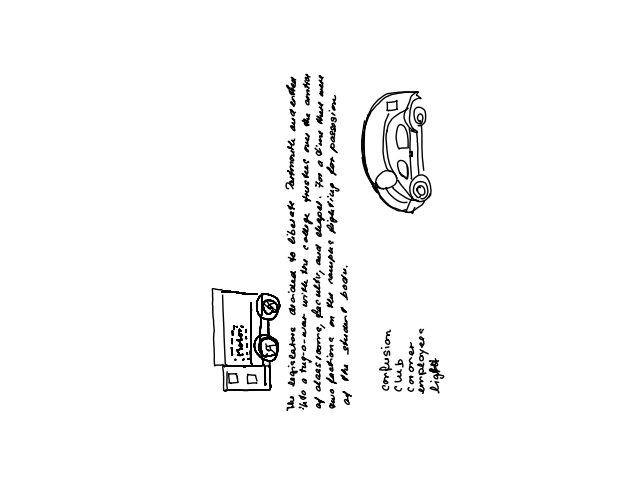 The legislature decided to liberate Dartmouth and entered
into a tug-o-war with the college trustees over the control
of classrooms, faculty, and chapel. For a time there were
two factions on the campus fighting for possession
of the student body.
confusion
club
coroner
light